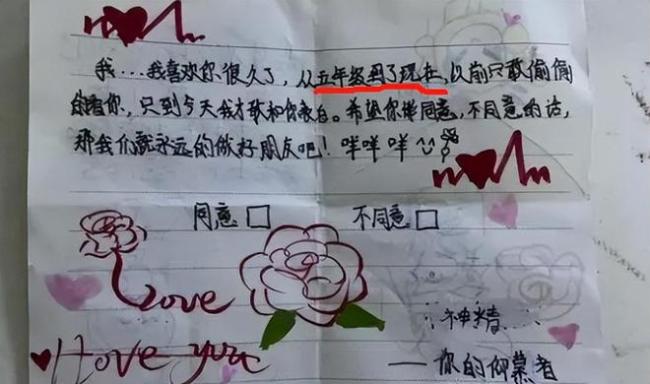 我...我喜欢你很久了，从五年级到了现在，以前只敢偷偷
的看你，只到今天我才敢和你表白。希望你能同意，不同意的话，
那我们就永远的做好朋友吧！咩咩咩
同意□ 不同意□
Love
I love you
神精
——你的仰慕者